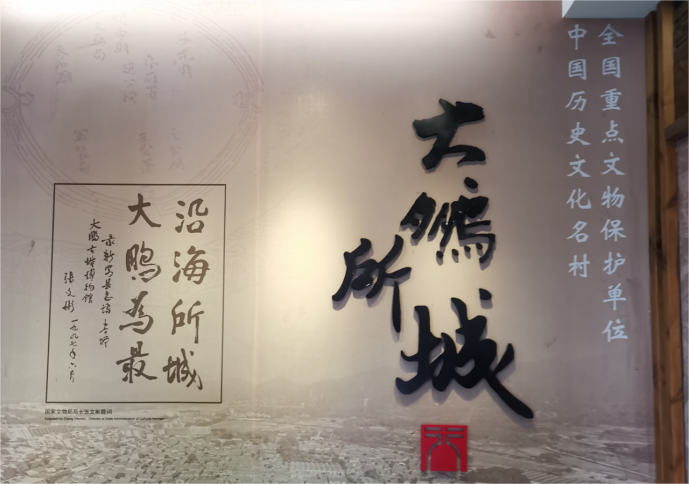 全国重点文物保护单位
中国历史文化名村
大鹏所城
沿海所城
大鹏为最
录新安县志语 李烨
大鹏古城博物馆
张文彬 一九九七年六月
国家文物局局长张文彬题词